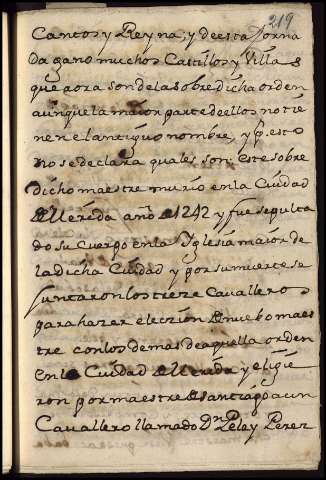 219
Cantos y Reyna, y de esta Jorna
da gano muchos Castillos y Villas
que aora son de la sobredicha orden
aunque la maior parte de ellos no tie
nen el antiguo nombre, y p.r esto
no se declara quales son: este sobre
dicho maestre murio en la Ciudad
de Merida año de 1242 y fue sepulta
do su Cuerpo en la Yglesia maior de
la dicha Ciudad y por su muerte se
juntaron los treze Cavalleros
para hazer elección de nuebo maes
tre con los demas de aquella orden
en la Ciudad de Merida y eligie
ron por maestre de santiago a un
Cavallero llamado D.n Pelay Perez